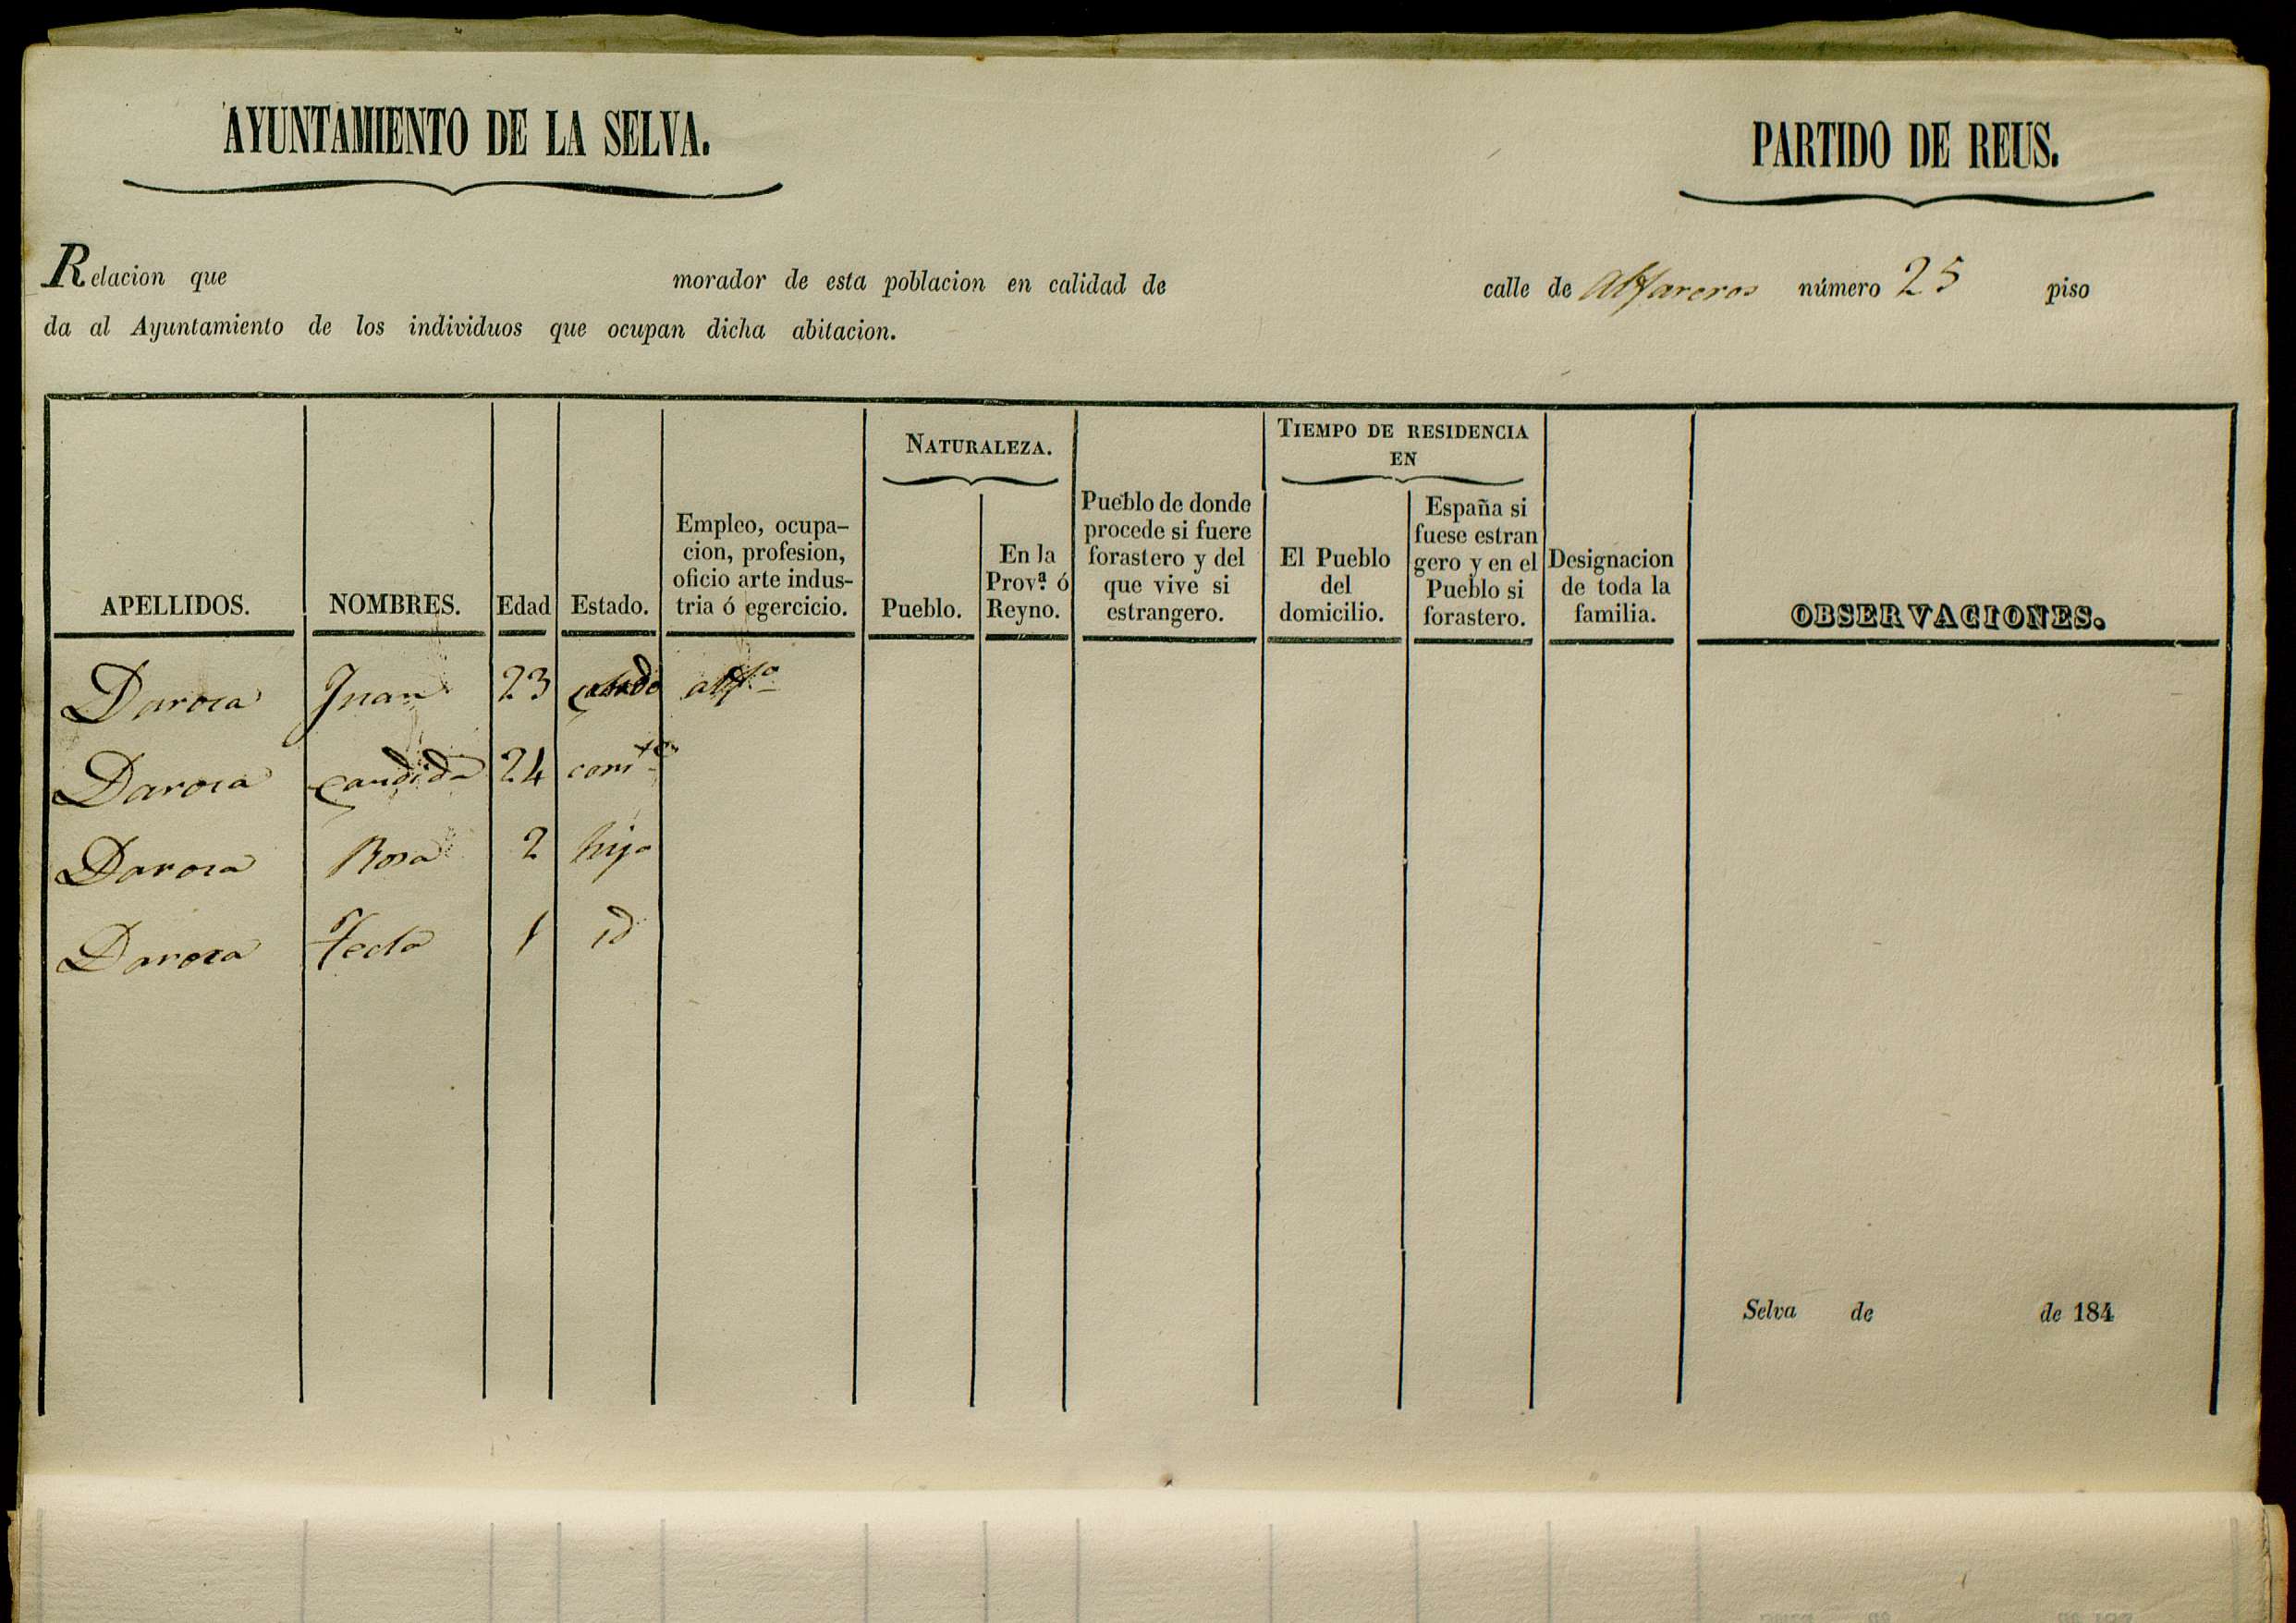 AYUNTAMIENTO DE LA SELVA.
PARTIDO DE REUS.
Relacion que morador de esta poblacion en calidad de calle de Alfareros número 25 piso
da al Ayuntamiento de los individuos que ocupan dicha abitacion.
APELLIDOS.
NOMBRES.
Edad
Estado.
Empleo, ocupa-
cion, profesion,
oficio arte indus-
tria ó egercicio.
NATURALEZA.
Pueblo.
En la
Prov.ª ó
Reyno.
Pueblo de donde
procede si fuere
forastero y del
que vive si
estrangero.
TIEMPO DE RESIDENCIA
EN
El Pueblo
del
domicilio.
España si
fuese estran
gero y en el
Pueblo si
forastero.
Designacion
de toda la
familia.
OBSERVACIONES.
Daroca Juan 23 casado alfo
Daroca Candida 24 conte
Daroca Rosa 2 hija
Daroca Tecla 1 id
Selva de de 184